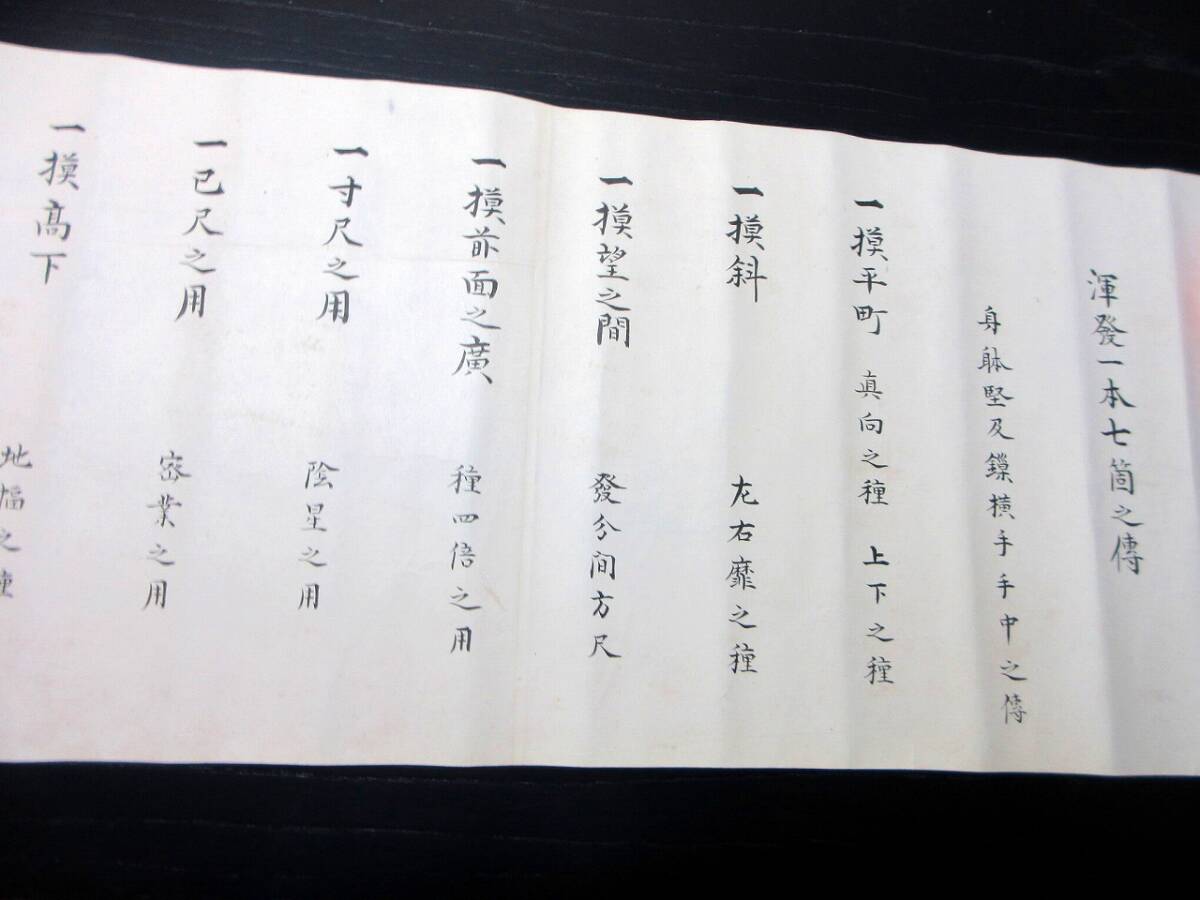 渾發一本七箇之傳
身躰堅及鏁横手手中之傳
一摸平町 真向之種 上下之種
一摸斜 左右靡之種
一摸望之間 發分间方尺
一摸前面之廣 種四倍之用
一寸尺之用 陰星之用
一已尺之用 密業之用
一摸高下 地幅之種